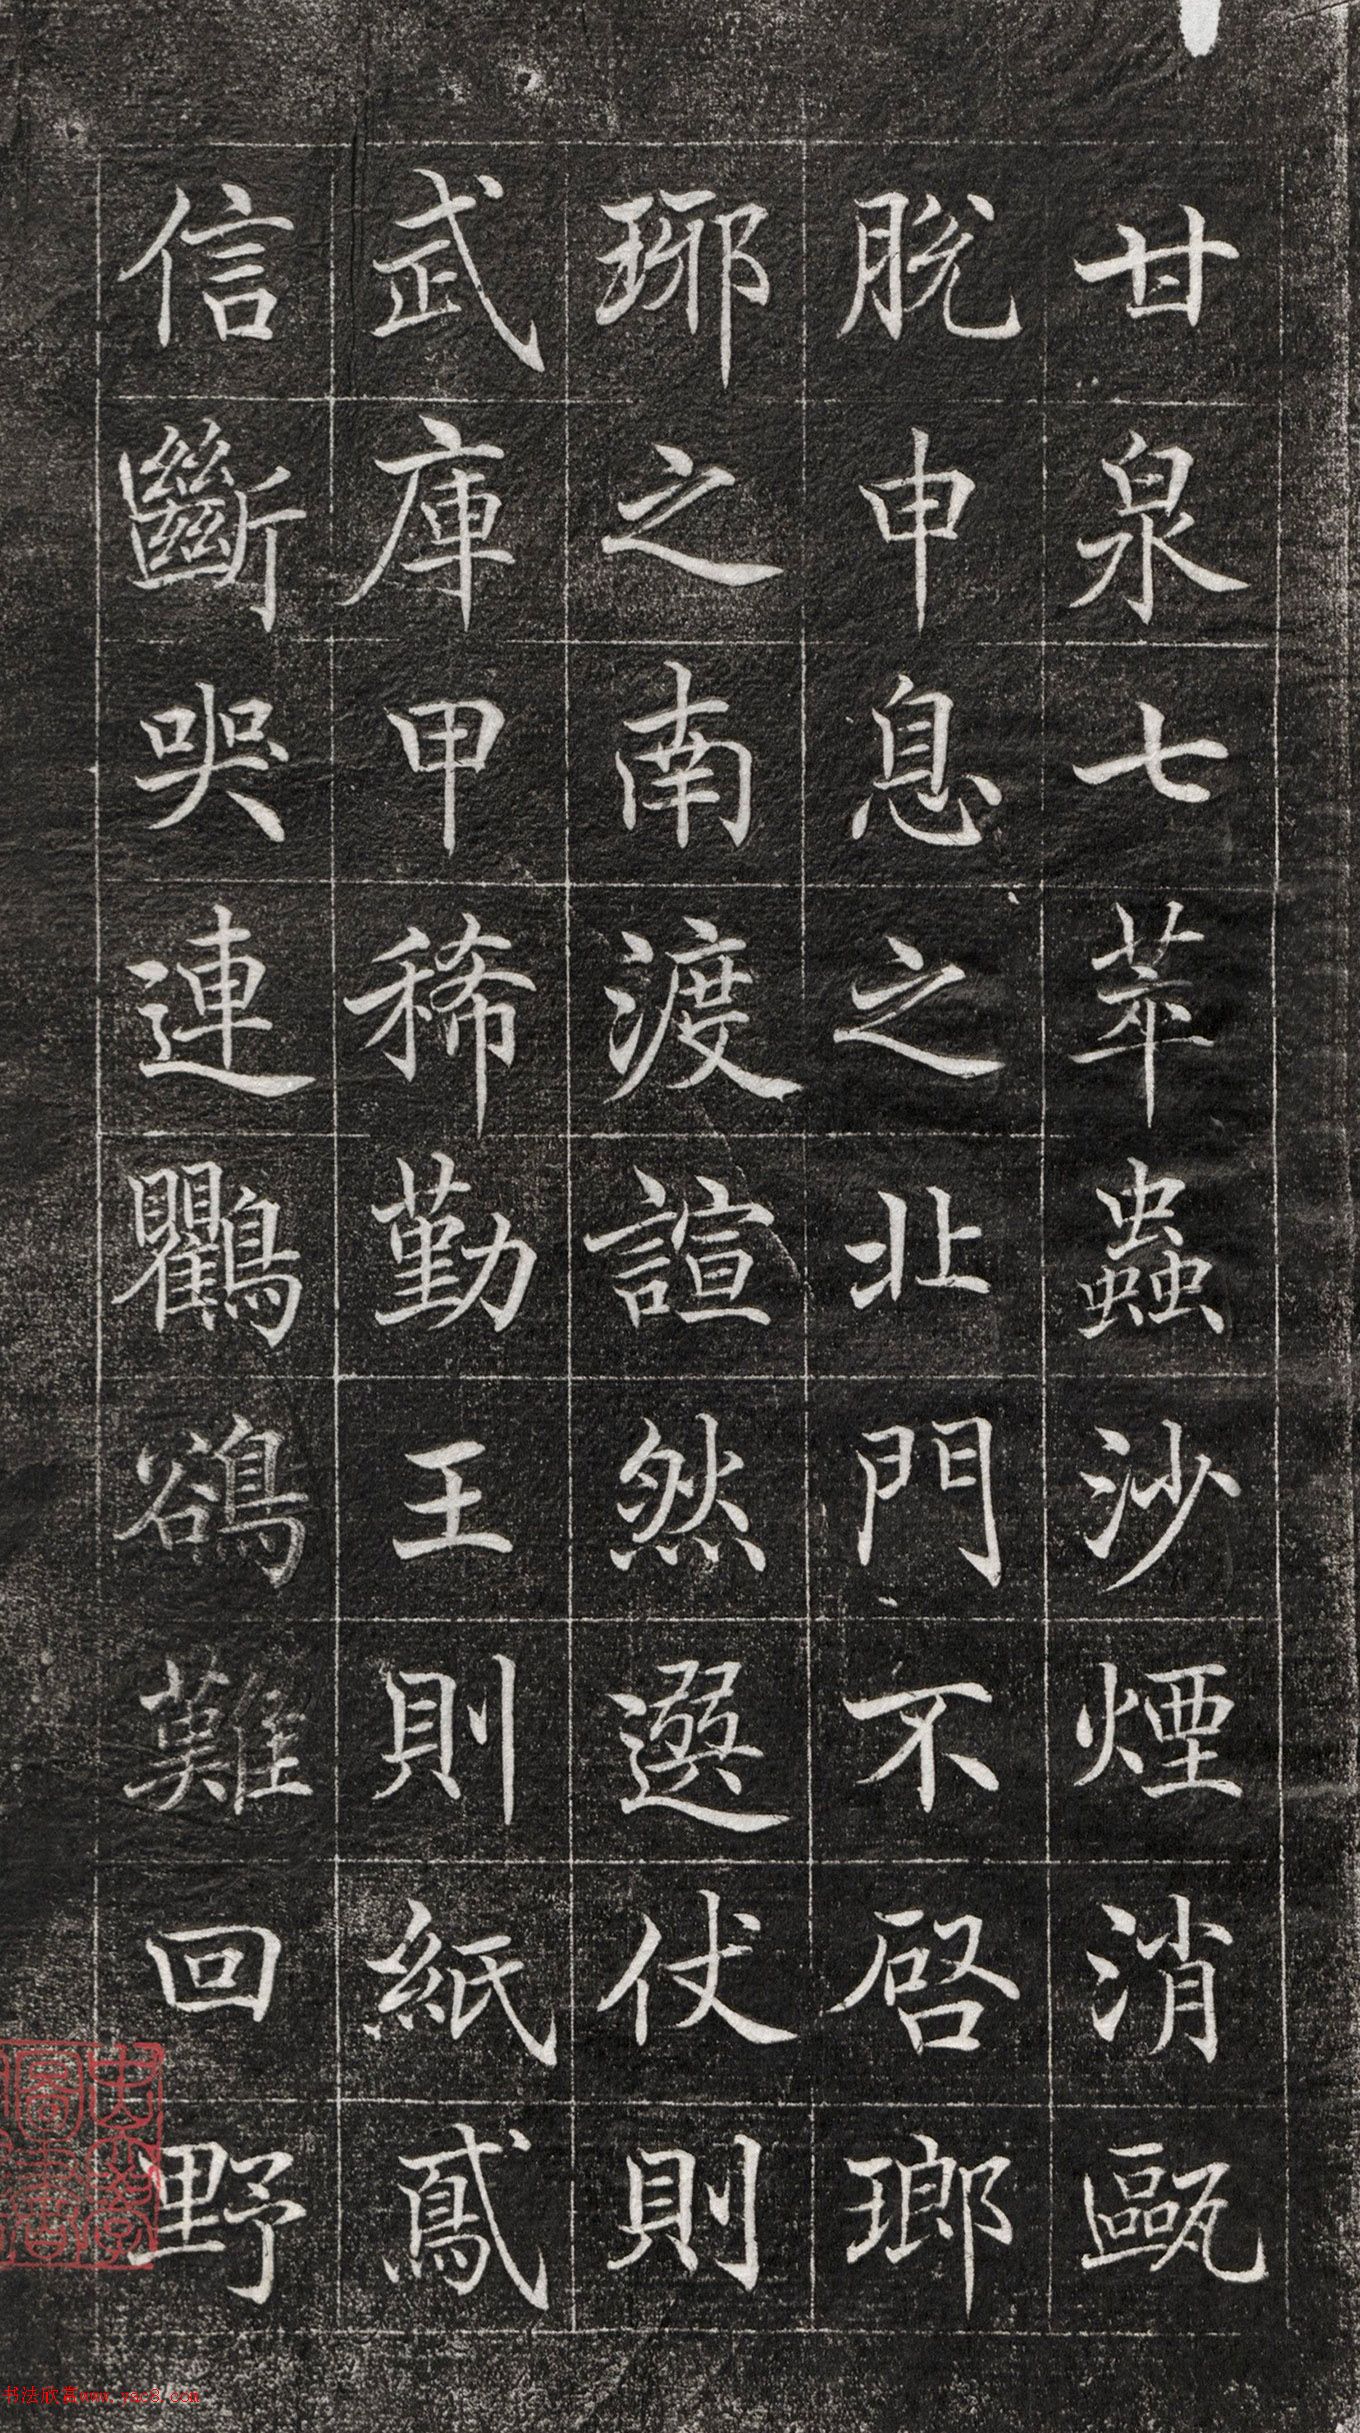 甘泉七萃蟲沙煙消甌
脫申息之北門不啓瑯
琊之南渡諠然選仗則
武庫甲稀勤王則紙鳶
信斷哭連鸜鵒難回野
书法欣赏www.yac8.com